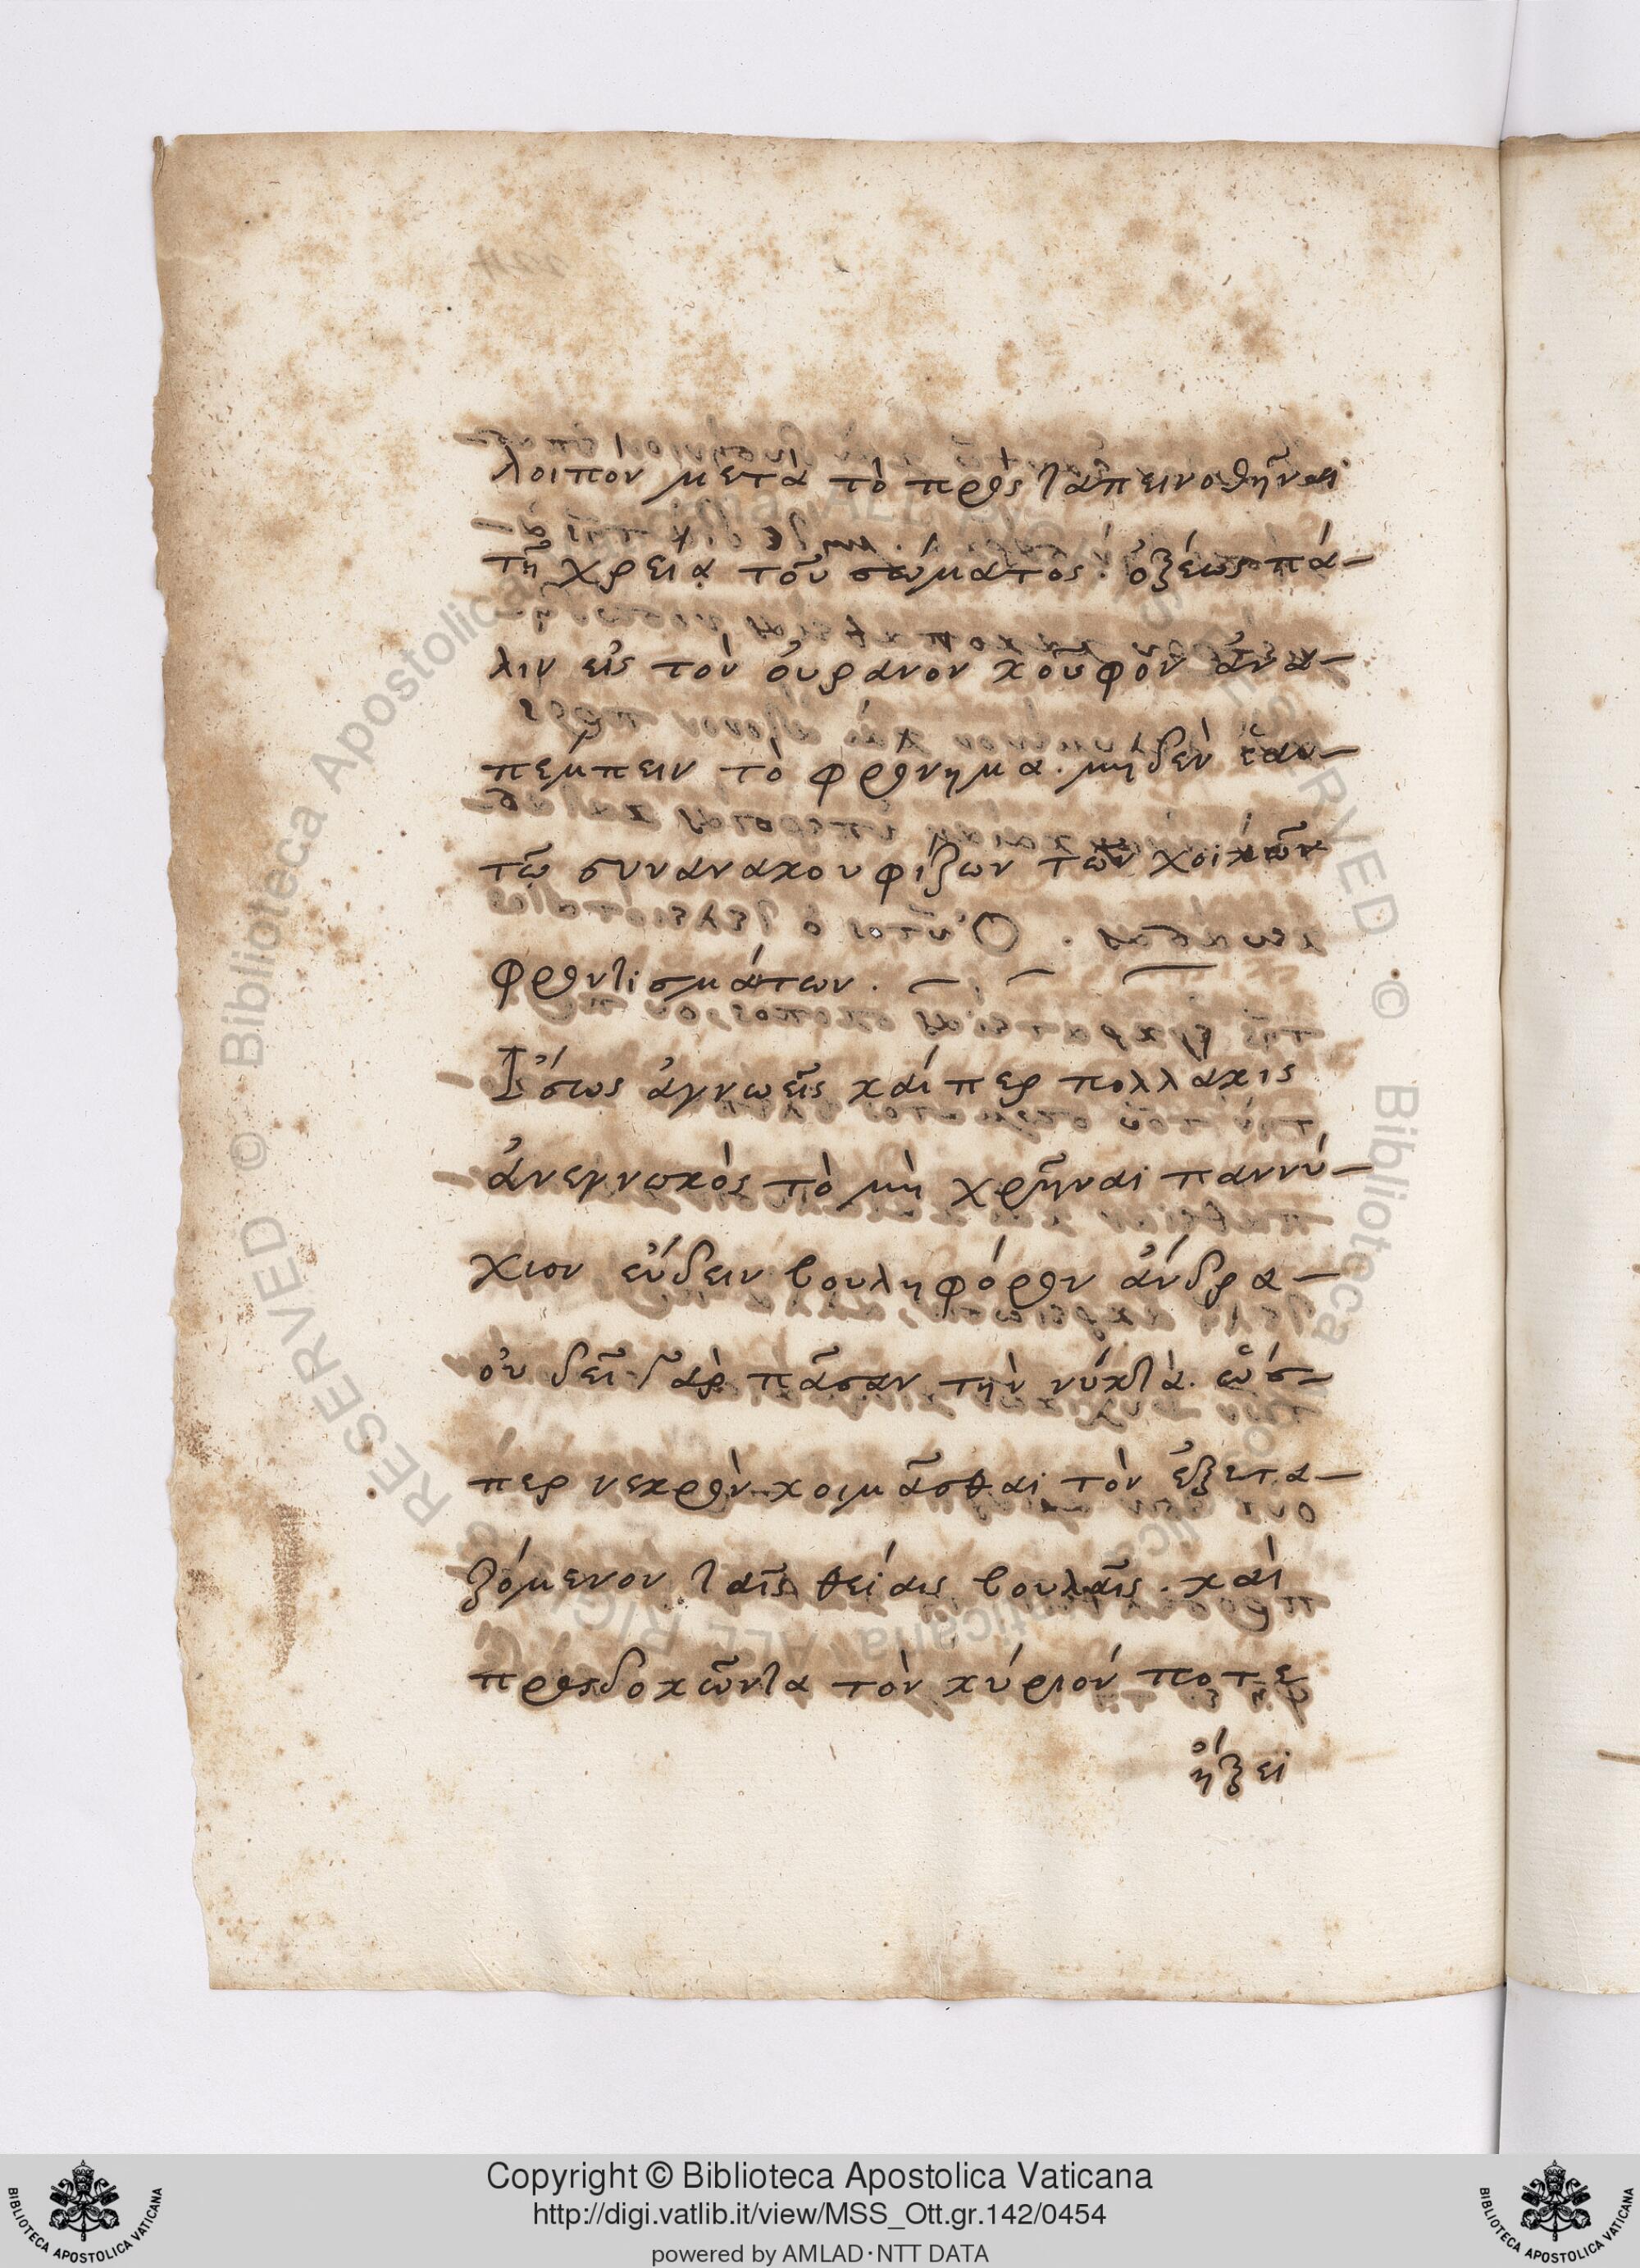 λοιπὸν μετὰ τὸ πρὸς ταπεινοθῆναι
τῇ χρείᾳ τοῦ σώματος· ὀξέως πά-
λιν εἰς τὸν ὀυρανον κοῦφον ἀνα-
πέμπειν τὸ φρόνημα· μηδὲν ἑαυ-
τῶ συνανακουφίζων τῶν χοϊκῶν
φροντισμάτων.
Ἴσως ἀγνωεῖς κάι περ πολλακις
ἀνεγνωκὸς τὸ μὴ χρῆναι παννύ-
χιον εὕδειν βουληφόρον ἄνδρα-
οὐ δεῖ γὰρ πᾶσαν τὴν νύκτα· ὥσ-
περ νεκρὸν κοιμᾶσθαι τὸν ἐξετα-
ζόμενον ταῖς θείαις βουλαῖς· καὶ
προσδοκῶντα τὸν κύριόν ποτε
ἥξει
BIBLIOTECA APOSTOLICA VATICANA
Copyright © Biblioteca Apostolica Vaticana
http://digi.vatlib.it/view/MSS_Ott.gr.142/0454
powered by AMLAD·NTT DATA
BIBLIOTECA APOSTOLICA VATICANA